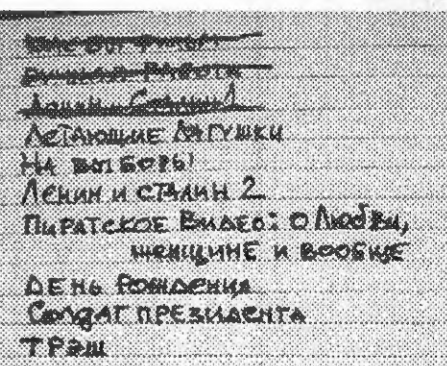 Ленин и Сталин 1
Летающие лягушки
На выборы
Ленин и Сталин 2
Пиратское видео: о любви,
женщине и вообще
День рождения
Солдат президента
Трэш